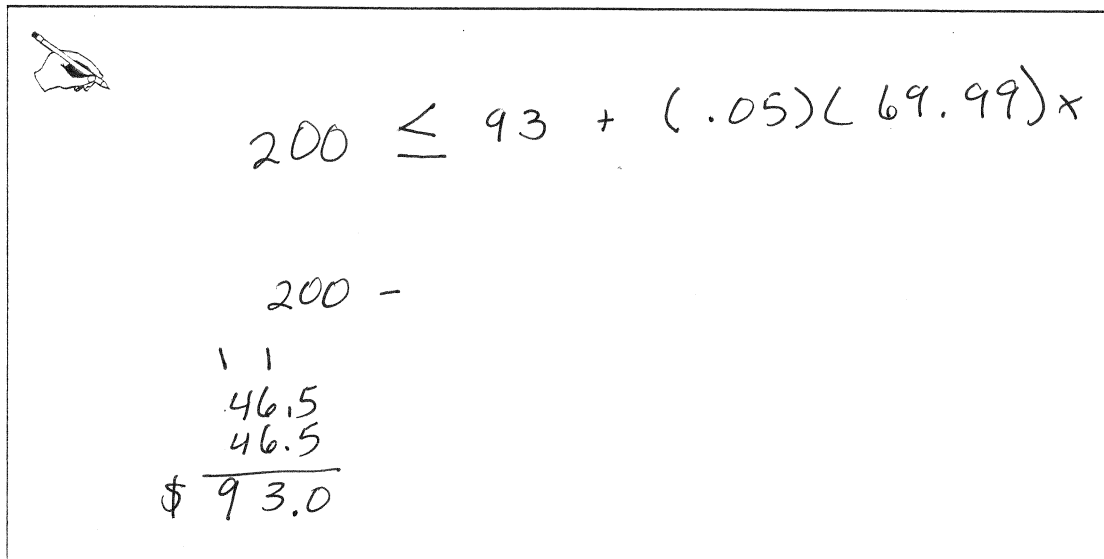 200 ≤ 93 + (.05)(69.99)x
200 -
1 1
46.5
46.5
$ 93.0